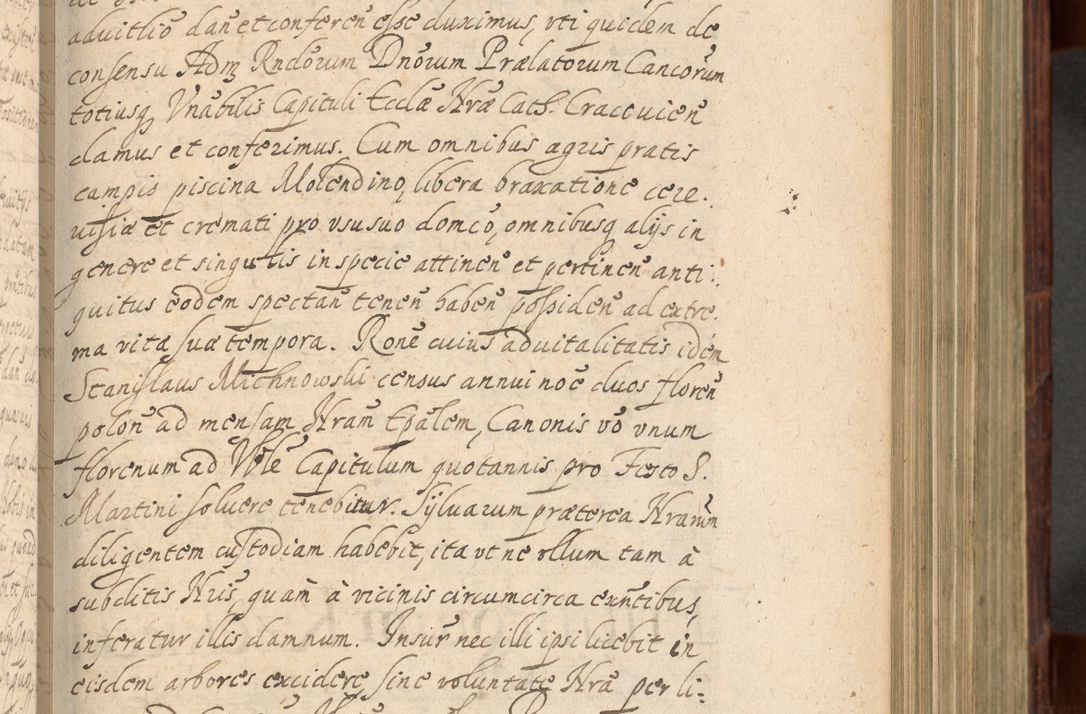 aduitlio dan̄ et conferen̄ esse duximus, vti quidem de
consensu Adm̄ Rndōrum Dnōrum Prælatorum Cancorum
totiusq́ Vnabilis Capituli Ecclæ Nræ Cath. Cracouien̄
damus et conferimus. Cum omnibus agris pratis
campis piscina Molendino, libera braxatione cere.
uisiæ et cremati pro vsu suo domco, omnibusq́ alijs in
genere et singulis in specie attinen̄ et pertinen̄ anti:
quitus eodem spectan̄ tenen̄ haben̄ possiden̄ ad extre.
ma vitæ suæ tempora. Rone cuius aduitalitatis idem
Stanislaus Michnowski census annui noe duos floren̄
polon̄ ad mensam Nram Epalem, Canonis vo vnum
florenum ad Vble Capitulum quotannis pro Festo S.
Martini soluere tenebitur. Syluarum præterea Nrarum
diligentem custodiam habebit, ita vt ne vllum tam à
subditis Nris, quam à vicinis circumcirca exntibus,
inferatur illis damnum. Insūr nec illi ipsi licebit in
eisdem arbores excidere, sine voluntate Nra per li: